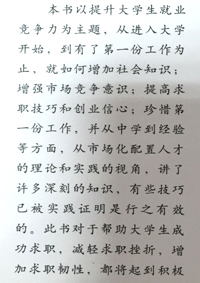 本书以提升大学生就业
竞争力为主题，从进入大学
开始，到有了第一份工作为
止，就如何增加社会知识；
增强市场竞争意识；提高求
职技巧和创业信心；珍惜第
一份工作，并从中学到经验
等方面，从市场化配置人才
的理论和实践的视角，讲了
许多深刻的知识，有些技巧
已被实践证明是行之有效
的。此书对于帮助大学生成
功求职，减轻求职挫折，增
加求职韧性，都将起到积极